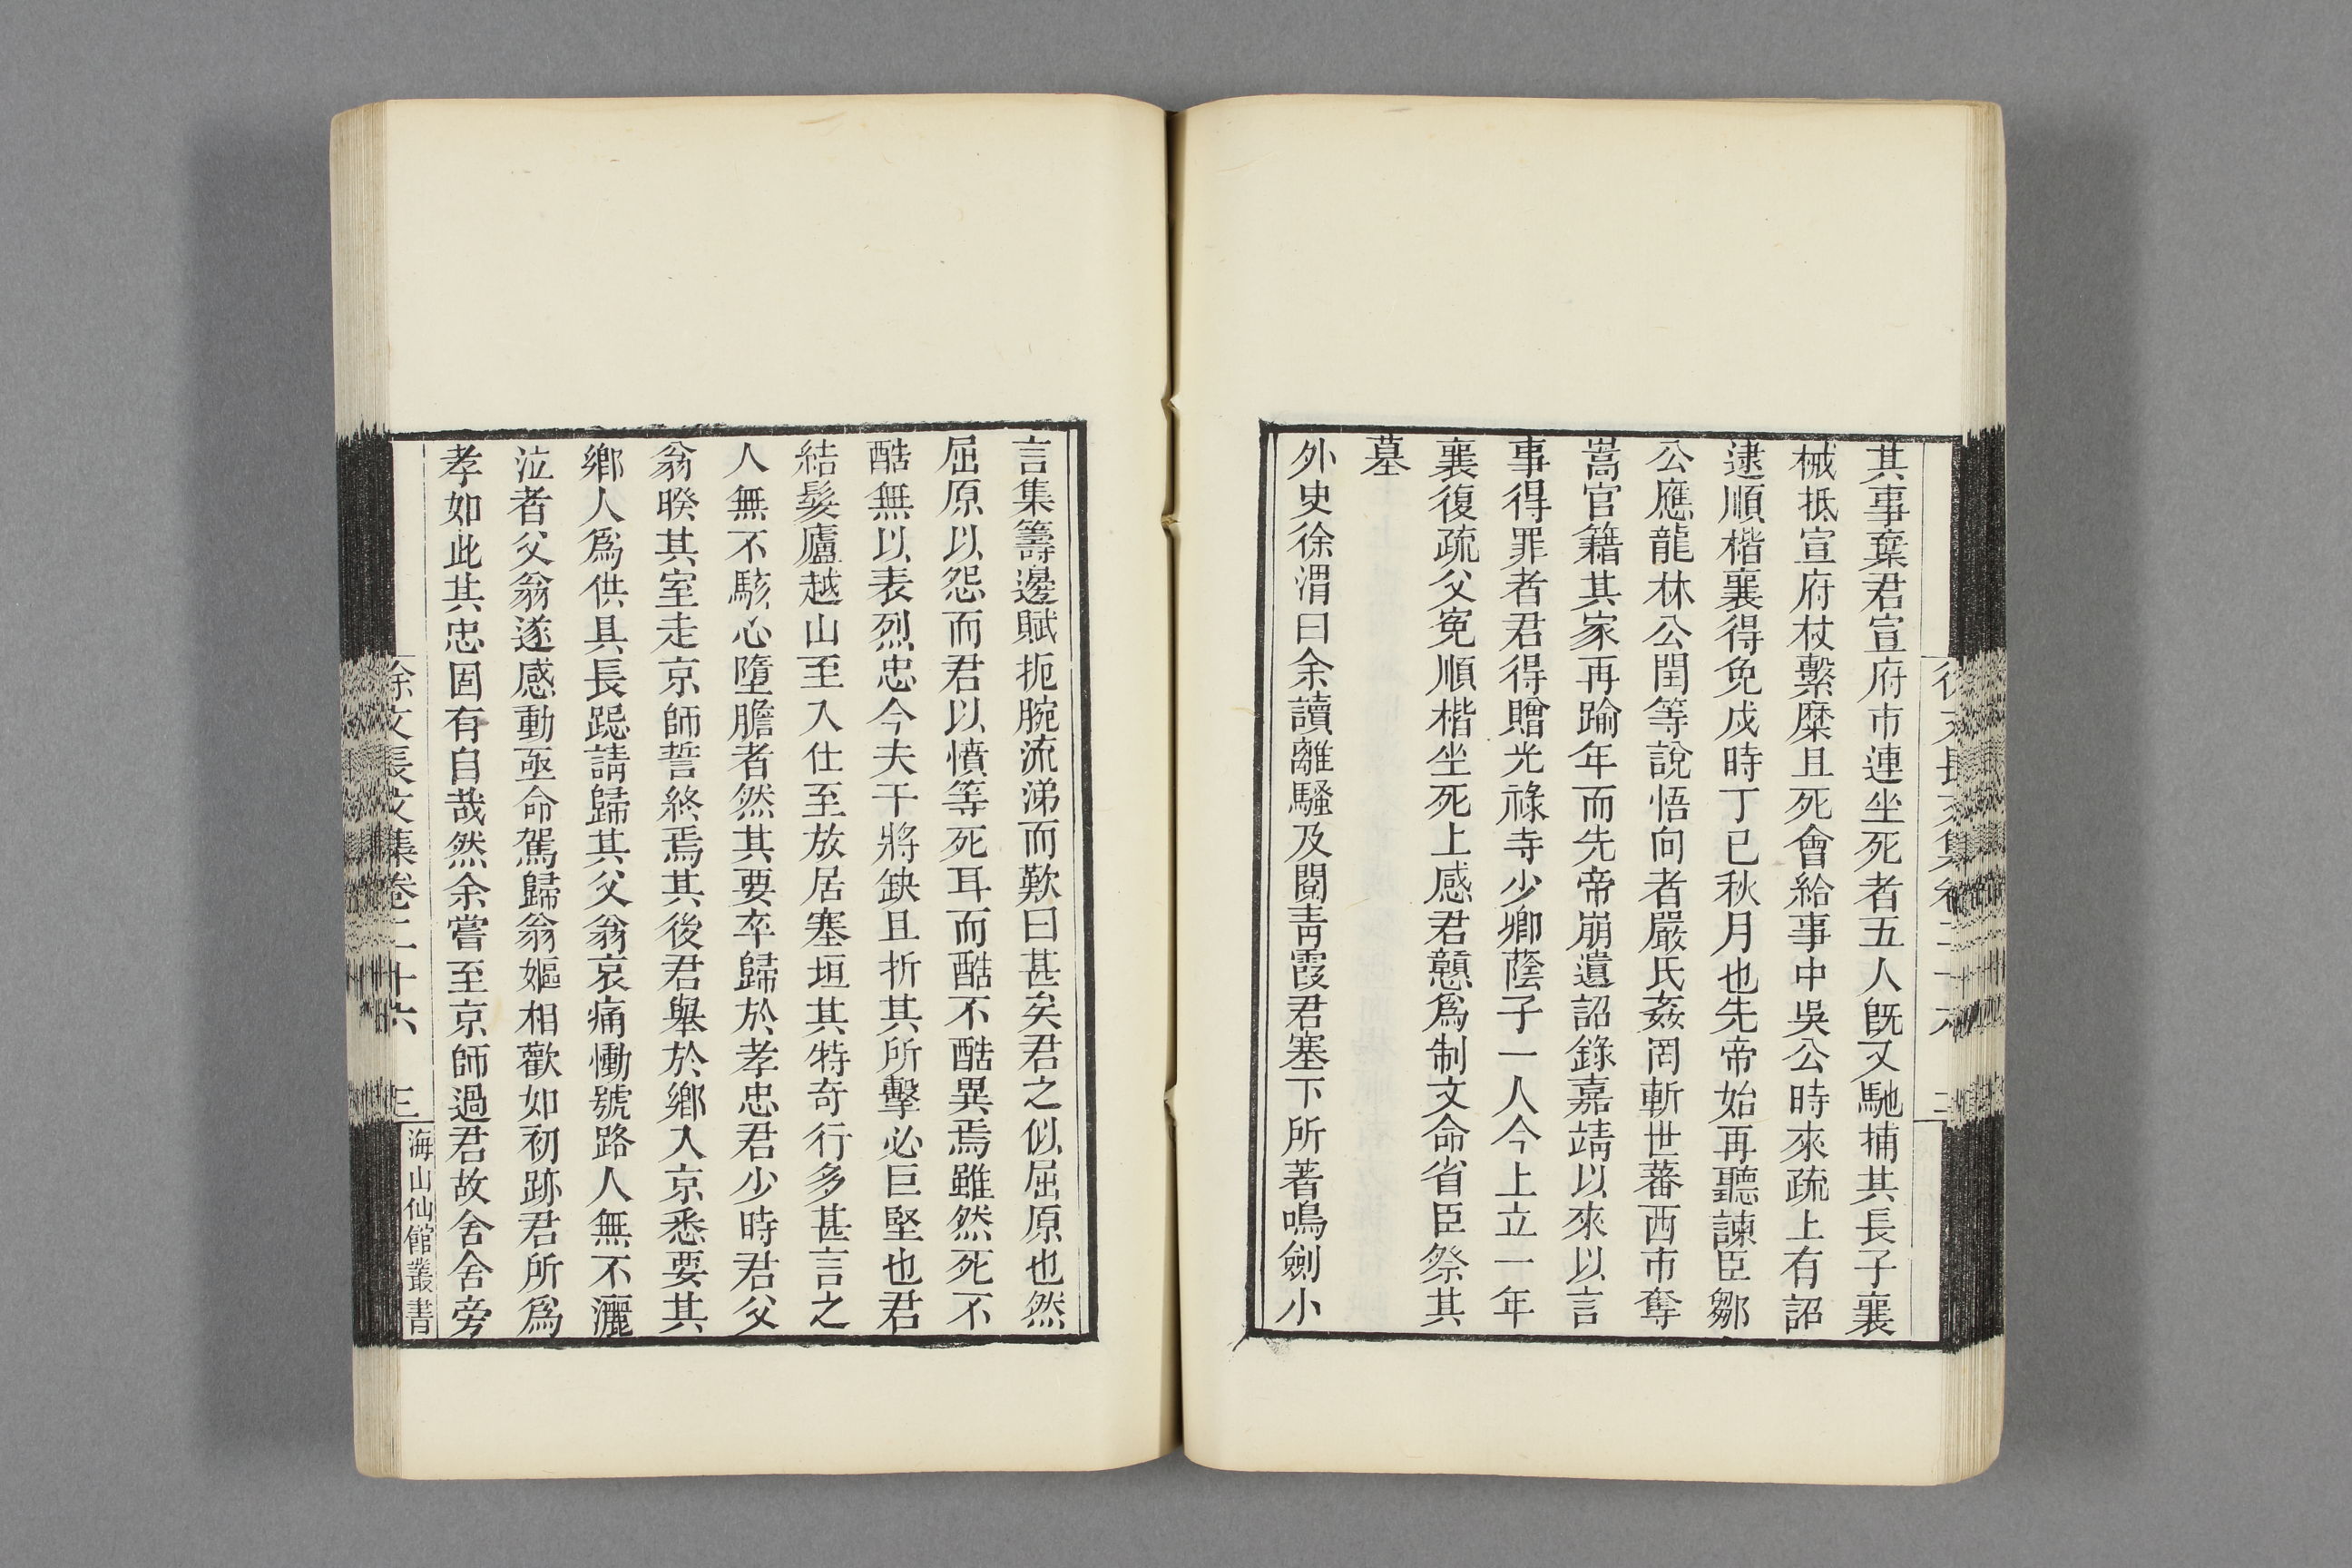 其事棄君宣府市連坐死者五人既又馳捕其長子襄
械抵宣府杖繫糜且死會給事中吳公時來疏上有詔
逮順楷襄得免戍時丁巳秋月也先帝始再聽諫臣鄒
公應龍林公閏等說悟向者嚴氏姦罔斬世蕃西市奪
嵩官籍其家再踰年而先帝崩遺詔錄嘉靖以來以言
事得罪者君得贈光祿寺少卿蔭子一人今上立一年
襄復疏父寃順楷坐死上感君戇爲制文命省臣祭其
墓
外史徐渭曰余讀離騷及閱青霞君塞下所著鳴劍小
言集籌邊賦扼腕流涕而歎曰甚矣君之似屈原也然
屈原以怨而君以憤等死耳而酷不酷異焉雖然死不
酷無以表烈忠今夫干將缺且折其所擊必巨堅也君
結髮廬越山至入仕至放居塞垣其特奇行多甚言之
人無不駭心墮膽者然其要卒歸於孝忠君少時君父
翁睽其室走京師誓終焉其後君舉於鄉入京悉要其
鄉人爲供具長跽請歸其父翁哀痛慟號路人無不灑
泣者父翁遂感動亟命駕歸翁嫗相歡如初跡君所爲
孝如此其忠固有自哉然余嘗至京師過君故舍舍旁
徐文長文集卷二十六 三
海山仙館叢書